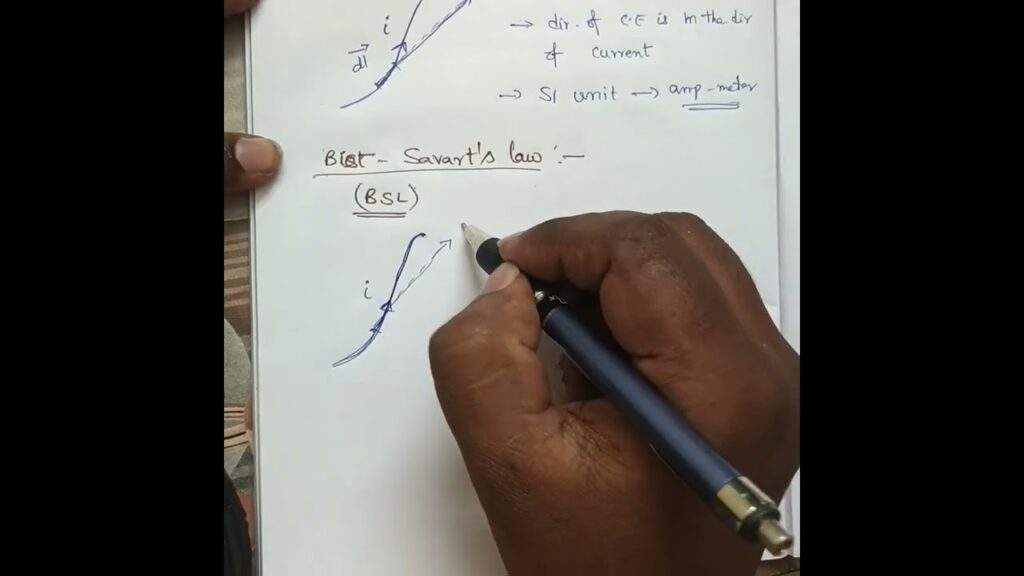 i
dl
→ dir. of C.E is in the dir
of current
→ SI unit → amp-meter
Biot - Savart's law :-
(BSL)
i